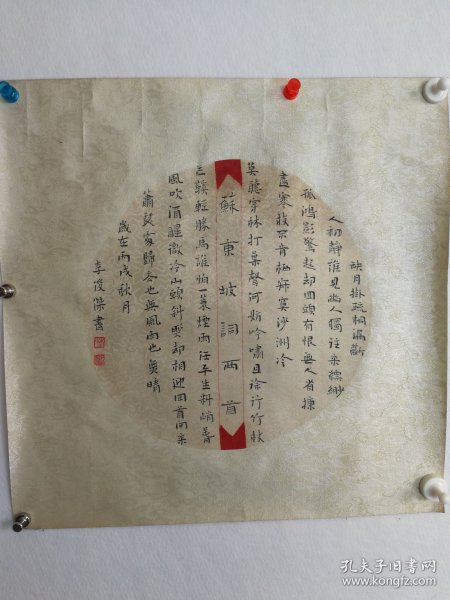 缺月掛疏桐漏斷
人初靜誰見幽人獨往來縹緲
孤鴻影驚起却回頭有恨無人省揀
盡寒枝不肯栖寂寞沙洲冷
莫聽穿林打葉聲何妨吟嘯且徐行竹杖
蘇東坡詞兩首
芒鞵輕勝馬誰怕一蓑煙雨任平生料峭春
風吹酒醒微冷山頭斜照却相迎回首向來
蕭瑟處歸去也無風雨也無晴
歲在丙戌秋月
李俊傑書
孔夫子旧书网
www.kongfz.com